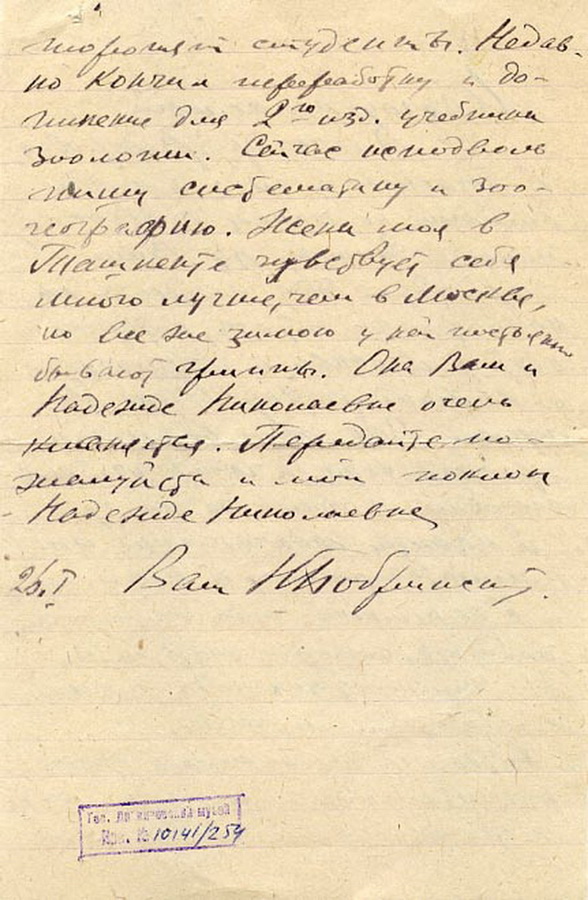 торопят студенты. Недав-
но кончил переработку и до-
полнение для 2го изд. учебника
зоологии. Сейчас исподволь
пишу систематику и зоо-
географию. Жена моя в
Ташкенте чувствует себя
много лучше, чем в Москве,
но все же зимою у ней постоянно
бывают гриппы. Она Вам и
Надежде Николаевне очень
кланяется. Передайте по-
жалуйста и мой поклон
Надежде Николаевне
26.I Ваш Н Бобринский.
Гос. Дарвиновский музей
Инв. № 10141/254